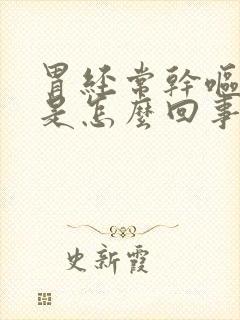 胃經常幹嘔
是怎麼回事
史新霞